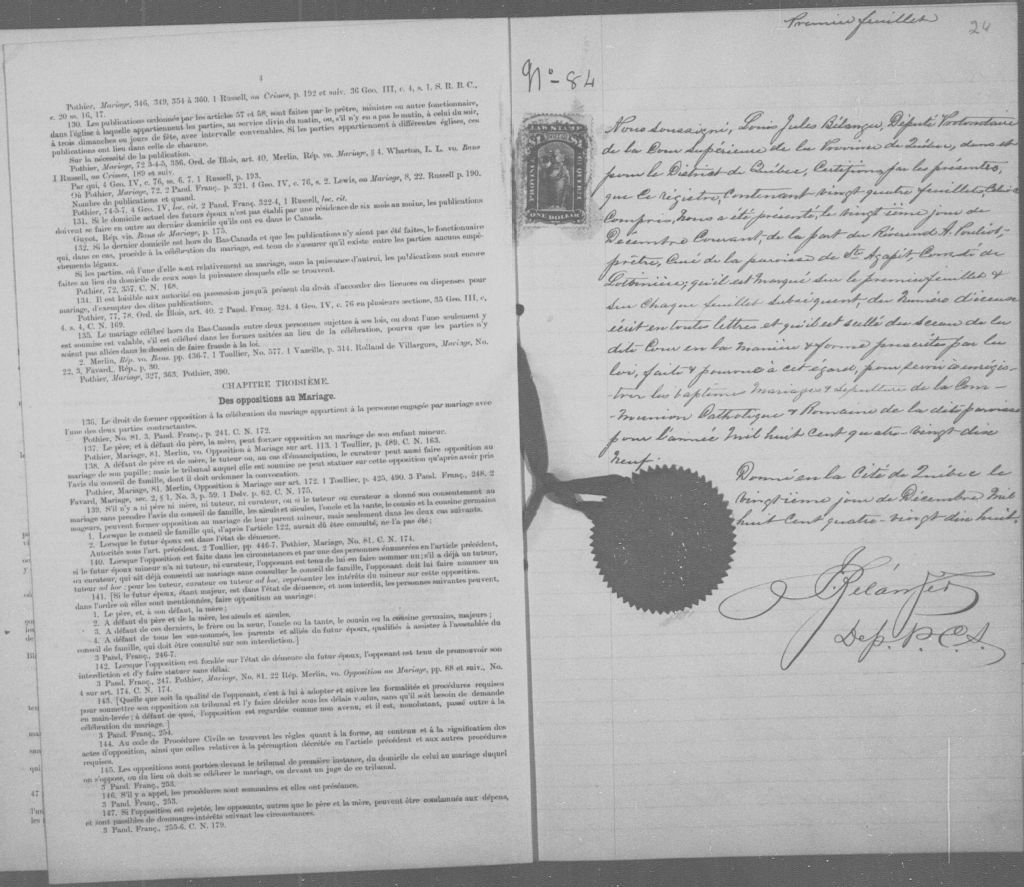 4
Pothier, Mariage, 346, 349, 354 à 360. 1 Russell, on Crimes, p. 192 et suiv. 36 Geo. III, c. 4, s. 1. S. R. B. C.,
c. 20 ss. 16, 17.
130. Les publications ordonnées par les articles 57 et 58, sont faites par le prêtre, ministre ou autre fonctionnaire,
dans l'église à laquelle appartiennent les parties, au service divin du matin, ou, s'il n'y en a pas le matin, à celui du soir,
à trois dimanches ou jours de fête, avec intervalle convenables. Si les parties appartiennent à différentes églises, ces
publications ont lieu dans celle de chacune.
Sur la nécessité de la publication.
Pothier, Mariage, 72 3-4-5, 356. Ord. de Blois, art. 40. Merlin, Rép. vo. Mariage, § 4. Wharton, L. L. vo. Bans
1 Russell, on Crimes, 189 et suiv.
Par qui, 4 Geo. IV, c. 76, ss. 6, 7. 1 Russell, p. 193.
Où Pothier, Mariage, 72. 2 Pand. Franç. p. 321. 4 Geo. IV, c. 76, s. 2. Lewis, on Mariage, 8, 22. Russell p. 190.
Nombre de publications et quand.
Pothier, 74-5-7. 4 Geo. IV, loc. cit. 2 Pand. Franç. 322-4, 1 Russell, loc. cit.
131. Si le domicile actuel des futurs époux n'est pas établi par une résidence de six mois au moins, les publications
doivent se faire en outre au dernier domicile qu'ils ont eu dans le Canada.
Guyot, Rép. vis. Bans de Mariage, p. 175.
132. Si le dernier domicile est hors du Bas-Canada et que les publications n'y aient pas été faites, le fonctionnaire
qui, dans ce cas, procède à la célébration du mariage, est tenu de s'assurer qu'il existe entre les parties aucuns empê-
chements légaux.
Si les parties, où l'une d'elle sont relativement au mariage, sous la puissance d'autrui, les publications sont encore
faites au lieu du domicile de ceux sous la puissance desquels elle se trouvent.
Pothier, 72, 357. C. N. 168.
134. Il est loisible aux autorité en possession jusqu'à présent du droit d'accorder des licences ou dispenses pour
mariage, d'exempter des dites publications.
Pothier, 77, 78. Ord. de Blois, art. 40. 2 Pand. Franç. 324. 4 Geo. IV, c. 76 en plusieurs sections, 35 Geo. III, c.
4, s. 4, C. N. 169.
135. Le mariage célébré hors du Bas-Canada entre deux personnes sujettes à ses lois, ou dont l'une seulement y
est soumise est valable, s'il est célébré dans les formes usitées au lieu de la célébration, pourvu que les parties n'y
soient pas allées dans le dessein de faire fraude à la loi.
2. Merlin, Rép. vo. Bans, pp. 436-7. 1 Toullier, No. 577. 1 Vazeille, p. 314. Rolland de Villargues, Mariage, No.
22, 3, Favard, Rép., p. 30.
Pothier, Mariage, 327, 363. Pothier, 390.
CHAPITRE TROISIÈME.
Des oppositions au Mariage.
136. Le droit de former opposition à la célébration du mariage appartient à la personne engagée par mariage avec
l'une des deux parties contractantes.
Pothier, No. 81. 3. Pand. Franç., p. 241. C. N. 172.
137. Le père, et à défaut du père, la mère, peut former opposition au mariage de son enfant mineur.
Pothier, Mariage, 81. Merlin, vo. Opposition à Mariage sur art. 113. 1 Toullier, p. 489. C. N. 163.
138. A défaut de père et de mère, le tuteur ou, au cas d'émancipation, le curateur peut aussi faire opposition au
mariage de son pupille; mais le tribunal auquel elle est soumise ne peut statuer sur cette opposition qu'après avoir pris
l'avis du conseil de famille, dont il doit ordonner la convocation.
Pothier, Mariage, 81. Merlin, Opposition à Mariage sur art. 172. 1 Toullier, p. 425, 490. 3 Pand. Franç., 248. 2
Favard, Mariage, sec. 2, § 1, No. 3, p. 59. 1 Delv. p. 62. C. N. 175.
139. S'il n'y a ni père ni mère, ni tuteur, ni curateur, ou si le tuteur ou curateur a donné son consentement au
mariage sans prendre l'avis du conseil de famille, les aïeuls et aïeules, l'oncle et la tante, le cousin et la cousine germains
majeurs, peuvent former opposition au mariage de leur parent mineur, mais seulement dans les deux cas suivants.
1. Lorsque le conseil de famille qui, d'après l'article 122, aurait dû être consulté, ne l'a pas été;
2. Lorsque le futur époux est dans l'état de démence.
Autorités sous l'art. précédent. 2 Toullier, pp. 446-7. Pothier, Mariage, No. 81. C. N. 174.
140. Lorsque l'opposition est faite dans les circonstances et par une des personnes énumérées en l'article précédent,
si le futur époux mineur n'a ni tuteur, ni curateur, l'opposant est tenu de lui en faire nommer un; s'il a déjà un tuteur,
ou curateur, qui ait déjà consenti au mariage sans consulter le conseil de famille, l'opposant doit lui faire nommer un
tuteur ad hoc; pour les tuteur, curateur ou tuteur ad hoc, représenter les intérêts du mineur sur cette opposition.
141. [Si le futur époux, étant majeur, est dans l'état de démence, et non interdit, les personnes suivantes peuvent,
dans l'ordre où elles sont mentionnées, faire opposition au mariage:
1. Le père, et, à son défaut, la mère;
2. A défaut du père et de la mère, les aïeuls et aïeules.
3. A défaut de ces derniers, le frère ou la sœur, l'oncle ou la tante, le cousin ou la cousine germains, majeurs;
4. A défaut de tous les sus-nommés, les parents et alliés du futur époux, qualifiés à assister à l'assemblée du
conseil de famille, qui doit être consulté sur son interdiction.]
3 Pand. Franç., 246-7.
142. Lorsque l'opposition est fondée sur l'état de démence du futur époux, l'opposant est tenu de promouvoir son
interdiction et d'y faire statuer sans délai.
3 Pand. Franç., 247. Pothier, Mariage, No. 81. 22 Rép. Merlin, vo. Opposition au Mariage, pp. 88 et suiv., No.
4 sur art. 174. C. N. 174.
143. [Quelle que soit la qualité de l'opposant, c'est à lui à adopter et suivre les formalités et procédures requises
pour soumettre son opposition au tribunal et l'y faire décider sous les délais voulus, sans qu'il soit besoin de demande
en main-levée; à défaut de quoi, l'opposition est regardée comme non avenu, et il est, nonobstant, passé outre à la
célébration du mariage.]
3 Pand. Franç., 254.
144. Au code de Procédure Civile se trouvent les règles quant à la forme, au contenu et à la signification des
actes d'opposition, ainsi que celles relatives à la péremption décrétée en l'article précédent et aux autres procédures
requises.
145. Les oppositions sont portées devant le tribunal de première instance, du domicile de celui au mariage duquel
on s'oppose, ou du lieu où doit se célébrer le mariage, ou devant un juge de ce tribunal.
3 Pand. Franç., 253.
146. S'il y a appel, les procédures sont sommaires et elles ont préséance.
3 Pand. Franç., 253.
147. Si l'opposition est rejetée, les opposants, autres que le père et la mère, peuvent être condamnés aux dépens,
et sont passibles de dommages-intérêts suivant les circonstances.
3 Pand. Franç., 255-6. C. N. 179.
Premier feuillet
24
No - 84
LAW STAMP
PROVINCE
QUEBEC
ONE DOLLAR
Nous soussigné, Louis Jules Bélanger, Député Protonotaire
de la Cour Supérieure de la Province de Québec, dans et
pour le District de Québec, Certifions par les présentes,
que ce registre, contenant vingt quatre feuillets, celui-ci
Compris, Nous a été présenté, le vingtième jour de
Décembre Courant, de la part du Révérend A. Pouliot
prêtre, Curé de la paroisse de St. Agapit Comté de
Lotbinière; qu'il est marqué sur le premier feuillet &
sur Chaque feuillet subséquent, du Numéro d'iceux
écrit en toutes lettres et qu'il est scellé du sceau de la
dite Cour en la manière & forme prescrites par la
loi, faite & pourvue à cet égard, pour servir à enrégis-
-trer les baptêmes Mariages & Sépultures de la Com-
-munion Catholique & Romaine de la dite paroisse
pour l'année Mil huit Cent quatre-vingt dix
Neuf.
Donné en la Cité de Québec le
vingtième jour de Décembre Mil
huit Cent quatre-vingt dix huit.
Bélanger
Dep. P. C. S.